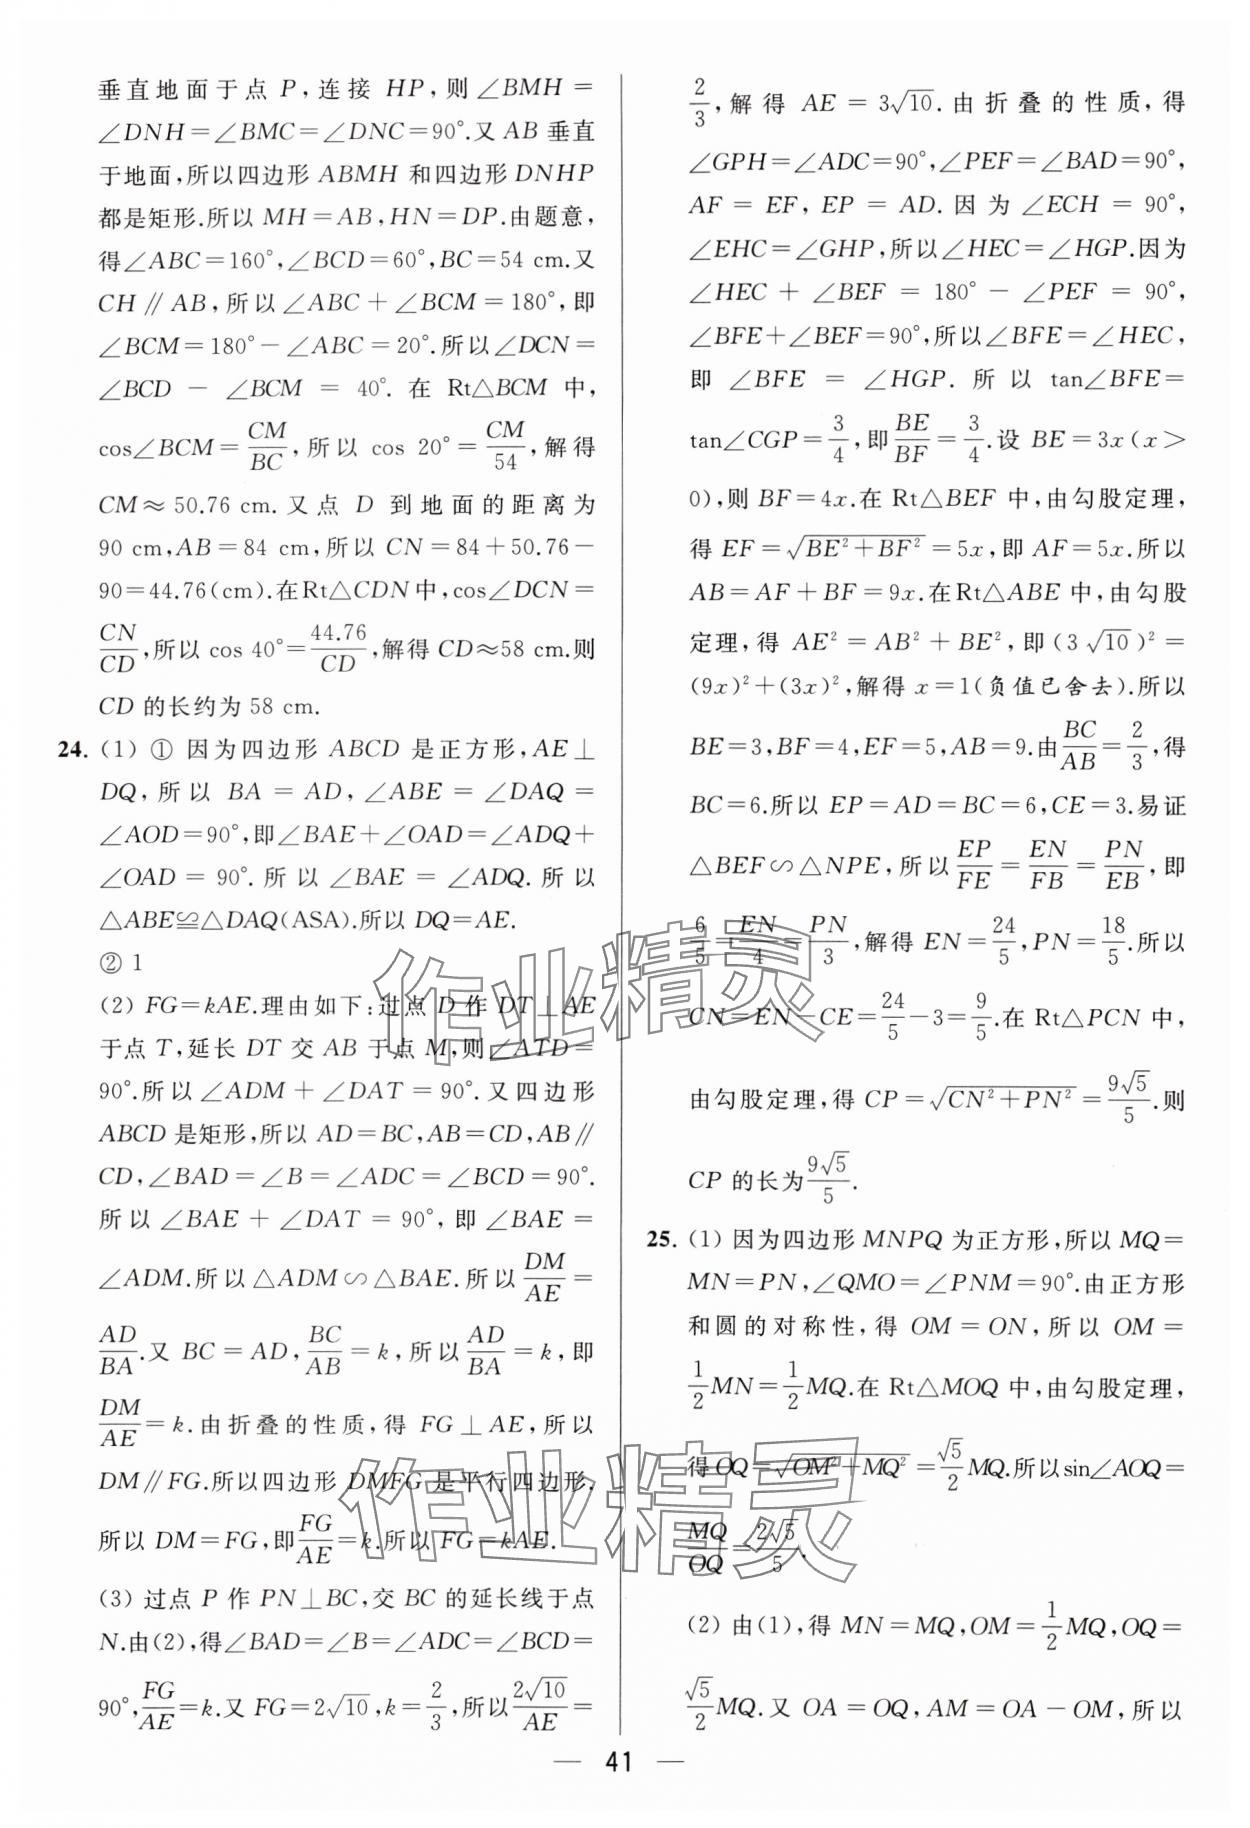 垂直地面于点 P,连接 HP,则∠BMH=
∠DNH=∠BMC=∠DNC=90°.又 AB 垂直
于地面,所以四边形 ABMH 和四边形 DNHP
都是矩形.所以 MH=AB,HN=DP.由题意,
得∠ABC=160°,∠BCD=60°,BC=54 cm.又
CH∥AB,所以∠ABC+∠BCM=180°,即
∠BCM=180°-∠ABC=20°.所以∠DCN=
∠BCD-∠BCM=40°.在 Rt△BCM 中,
cos∠BCM=CM/BC,所以 cos 20°=CM/54,解得
CM≈50.76 cm.又点 D 到地面的距离为
90 cm,AB=84 cm,所以 CN=84+50.76-
90=44.76(cm).在Rt△CDN中,cos∠DCN=
CN/CD,所以 cos 40°=44.76/CD,解得 CD≈58 cm.则
CD 的长约为 58 cm.
24. (1) ① 因为四边形 ABCD 是正方形,AE⊥
DQ,所以 BA=AD,∠ABE=∠DAQ=
∠AOD=90°,即∠BAE+∠OAD=∠ADQ+
∠OAD=90°.所以∠BAE=∠ADQ.所以
△ABE≌△DAQ(ASA).所以 DQ=AE.
② 1
(2) FG=kAE.理由如下:过点 D 作 DT⊥AE
于点 T,延长 DT 交 AB 于点 M,则∠ATD=
90°.所以∠ADM+∠DAT=90°.又四边形
ABCD 是矩形,所以 AD=BC,AB=CD,AB∥
CD,∠BAD=∠B=∠ADC=∠BCD=90°.
所以∠BAE+∠DAT=90°,即∠BAE=
∠ADM.所以△ADM∽△BAE.所以 DM/AE=
AD/BA.又 BC=AD,BC/AB=k,所以 AD/BA=k,即
DM/AE=k.由折叠的性质,得 FG⊥AE,所以
DM∥FG.所以四边形 DMFG 是平行四边形,
所以 DM=FG,即 FG/AE=k.所以 FG=kAE.
(3) 过点 P 作 PN⊥BC,交 BC 的延长线于点
N.由(2),得∠BAD=∠B=∠ADC=∠BCD=
90°,FG/AE=k.又 FG=2√10,k=2/3,所以 2√10/AE=
2/3,解得 AE=3√10.由折叠的性质,得
∠GPH=∠ADC=90°,∠PEF=∠BAD=90°,
AF=EF,EP=AD.因为∠ECH=90°,
∠EHC=∠GHP,所以∠HEC=∠HGP.因为
∠HEC+∠BEF=180°-∠PEF=90°,
∠BFE+∠BEF=90°,所以∠BFE=∠HEC,
即∠BFE=∠HGP.所以 tan∠BFE=
tan∠CGP=3/4,即 BE/BF=3/4.设 BE=3x(x>
0),则 BF=4x.在 Rt△BEF 中,由勾股定理,
得 EF=√(BE²+BF²)=5x,即 AF=5x.所以
AB=AF+BF=9x.在Rt△ABE 中,由勾股
定理,得 AE²=AB²+BE²,即(3√10)²=
(9x)²+(3x)²,解得 x=1(负值已舍去).所以
BE=3,BF=4,EF=5,AB=9.由 BC/AB=2/3,得
BC=6.所以 EP=AD=BC=6,CE=3.易证
△BEF∽△NPE,所以 EP/FE=EN/FB=PN/EB,即
6/5=EN/4=PN/3,解得 EN=24/5,PN=18/5.所以
CN=EN-CE=24/5-3=9/5.在 Rt△PCN 中,
由勾股定理,得 CP=√(CN²+PN²)=9√5/5.则
CP 的长为 9√5/5.
25. (1) 因为四边形 MNPQ 为正方形,所以 MQ=
MN=PN,∠QMO=∠PNM=90°.由正方形
和圆的对称性,得 OM=ON,所以 OM=
1/2MN=1/2MQ.在 Rt△MOQ 中,由勾股定理,
得 OQ=√(OM²+MQ²)=√5/2MQ.所以 sin∠AOQ=
MQ/OQ=2√5/5.
(2) 由(1),得 MN=MQ,OM=1/2MQ,OQ=
√5/2MQ.又 OA=OQ,AM=OA-OM,所以
— 41 —
作业精灵
作业精灵